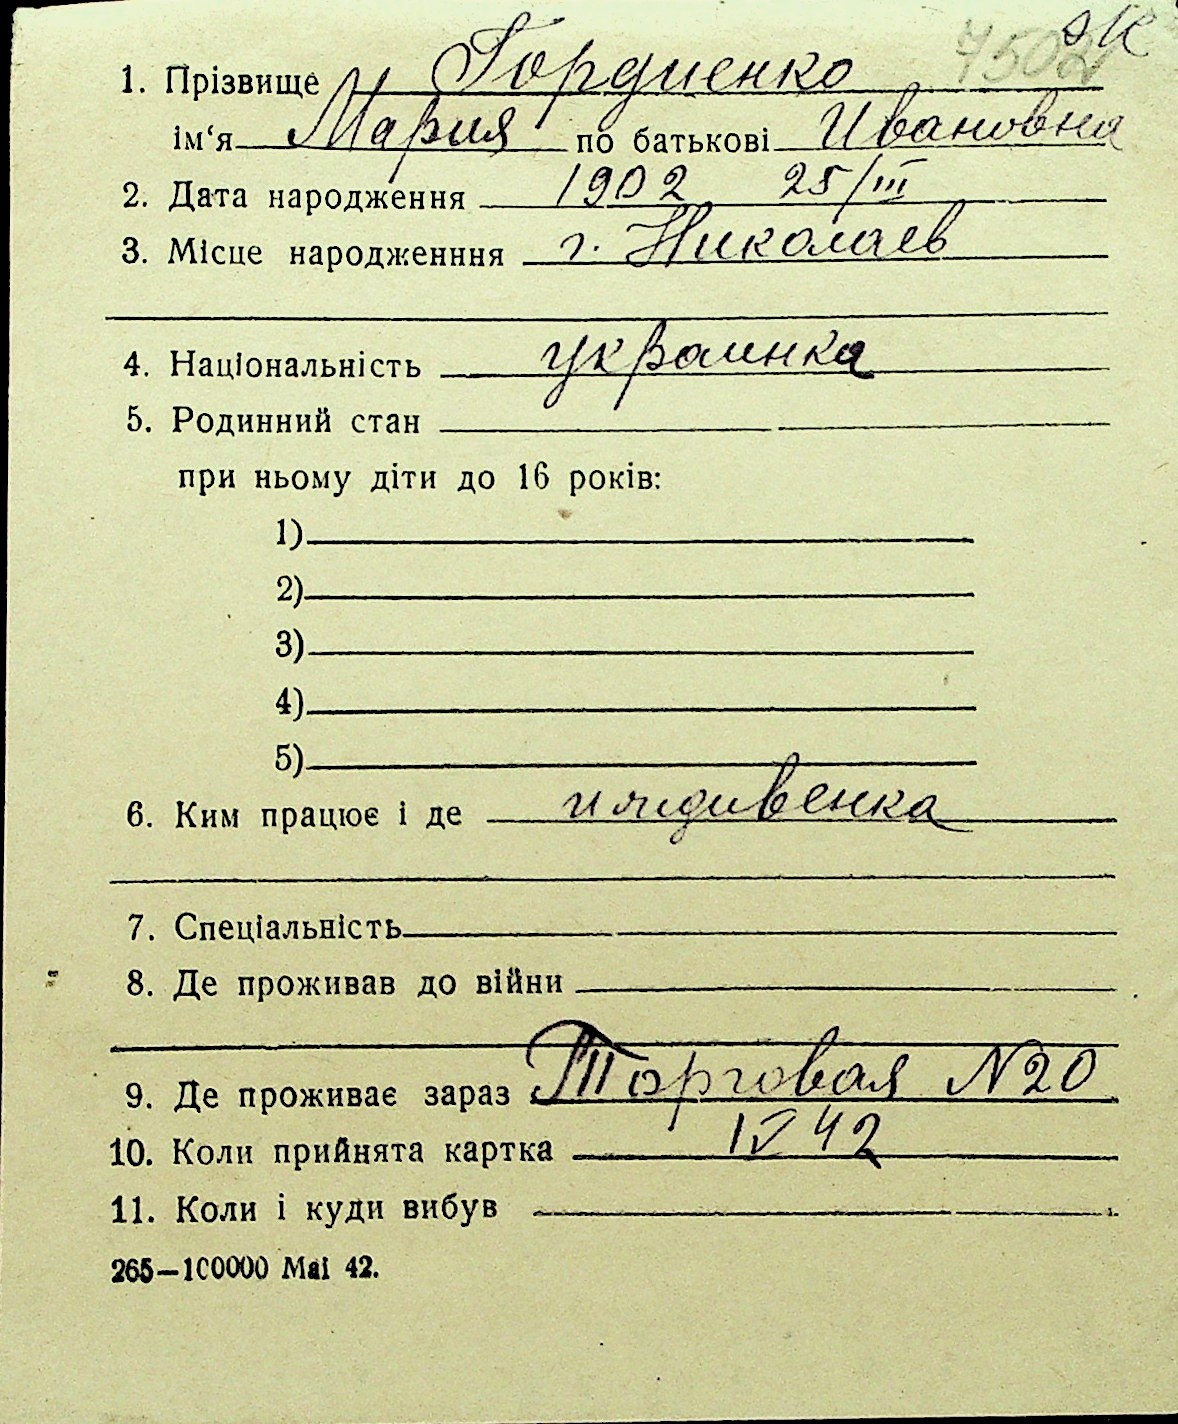 эк
1. Прізвище Гордиенко
ім‘я Мария по батькові Ивановна
2. Дата народження 1902 25/III
3. Місце народженння г. Николаев
4. Національність украинка
5. Родинний стан
при ньому діти до 16 років:
1)
2)
3)
4)
5)
6. Ким працює і де иждивенка
7. Спеціальність
8. Де проживав до війни
9. Де проживає зараз Торговая №20
10. Коли прийнята картка IV 42
11. Коли і куди вибув
265—100000 Mai 42.